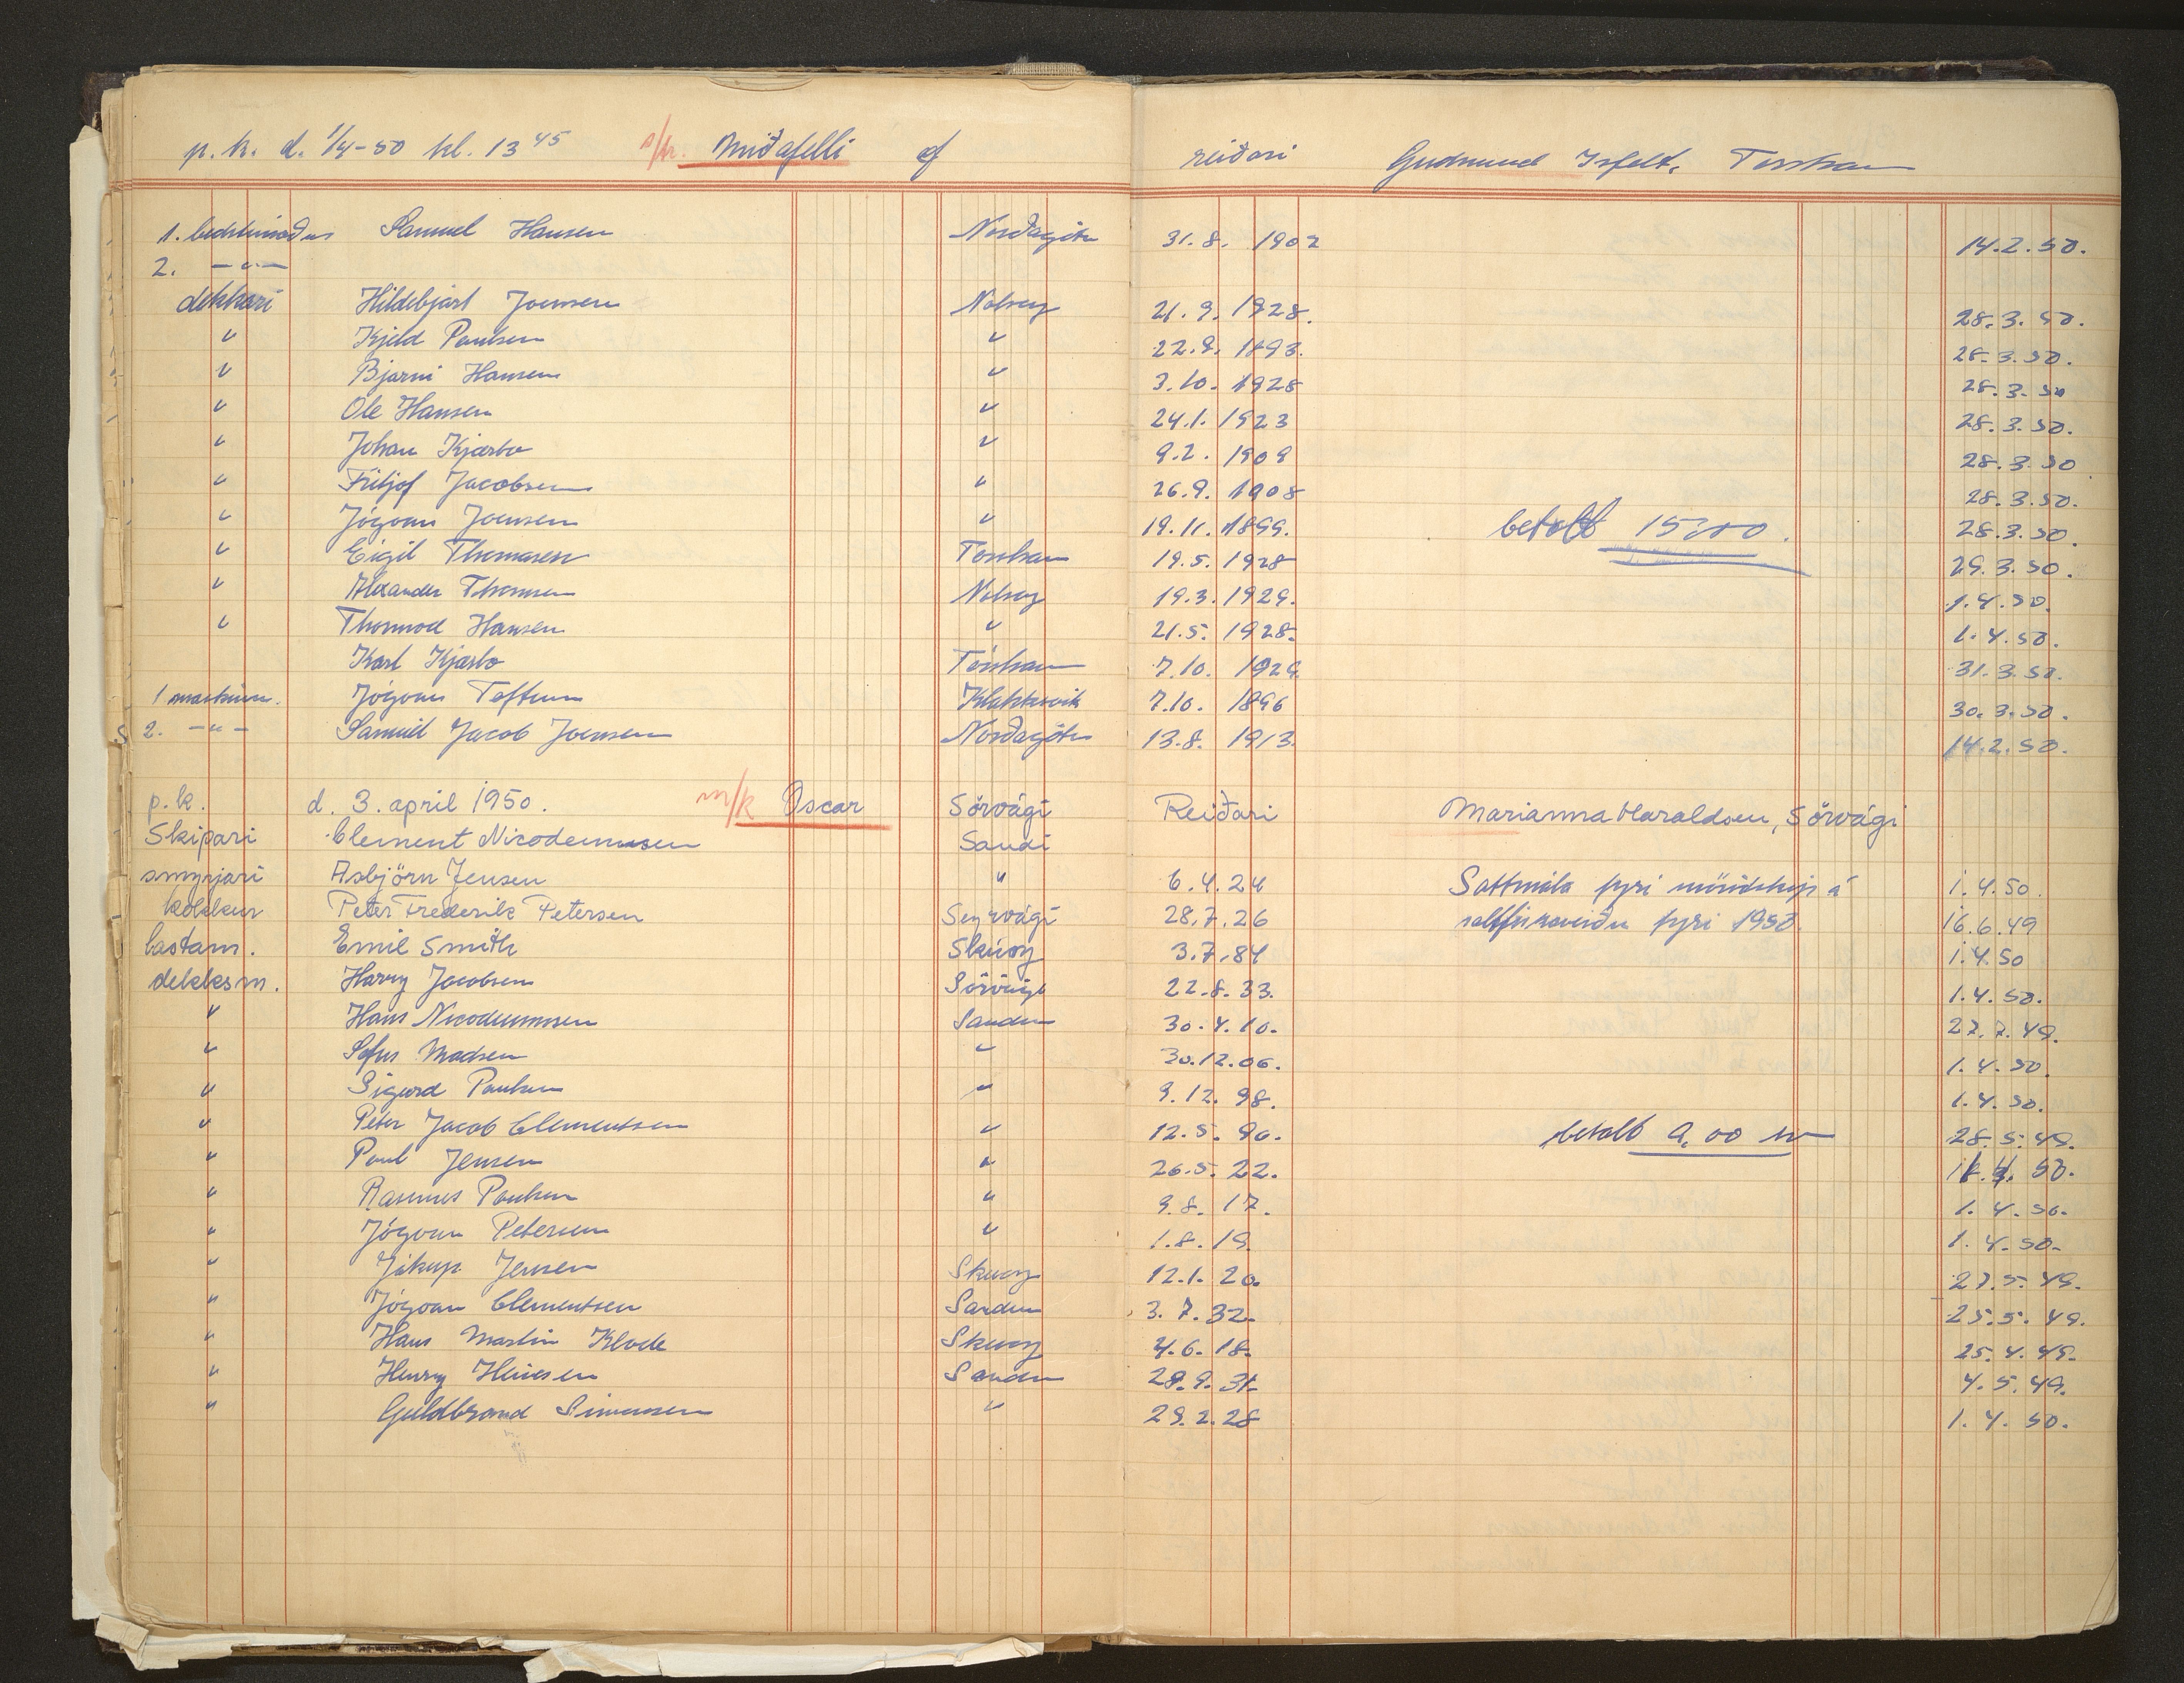 p.k. d. 1/4-50 kl. 13 45 s/k. Miðafelli af reiðari Gudmund Isfeld, Torshavn
1. Samuel Hansen Norðagötu 31.8. 1902 14.2.50.
2. —"—
dekkari Hildebjart Joensen Nolsoy 21.9. 1928. 28.3.50.
" Kjeld Poulsen " 22.9. 1893. 28.3.50.
" Bjarni Hansen " 3.10. 1928 28.3.50
" Ole Hansen " 24.1. 1923 28.3.50.
" Johan Kjærbo " 9.2. 1909 28.3.50
" Fritjof Jacobsen " 26.9. 1908 28.3.50.
" Jógvan Joensen " 19.11. 1899. betalt 15,00. 28.3.50.
" Eigil Thomasen Torshavn 19.5. 1928 29.3.50.
" Alexander Thomsen Nolsoy 19.3. 1929. 1.4.50.
" Thormod Hansen " 21.5. 1928. 1.4.50.
Karl Kjærbo Tórshavn 7.10. 1929 31.3.50.
1 maskinm. Jógvan Toftum Klakksvik 7.10. 1896 30.3.50.
2. —"— Samuel Jacob Joensen Norðagötu 13.8. 1913. 14.2.50.
p.k. d. 3. april 1950. m/k Oscar Sörvági Reiðari Marianna Haraldsen, Sörvági
Skipari Clement Nicodemussen Sandi
smyrjari Asbjörn Jensen " 6.4.24 Sattmála fyri mannskap á 1.4.50.
kokkur Peter Frederik Petersen Seyrvági 28.7.26 saltfiskaveiðu fyri 1950. 16.6.49
bastam. Emil Smith Skúoy 3.7.84 1.4.50
dekksm. Harry Jacobsen Sörvági 22.8.33. 1.4.50.
" Hans Nicodemussen Sandur 30.4.10. 27.7.49.
" Sofus Madsen " 30.12.06. 1.4.50.
" Sigurd Poulsen " 9.12.98. 1.4.50.
" Peter Jacob Clementsen " 12.5.90. betalt 9,00 kr 28.5.49.
" Poul Jensen " 26.5.22. 1.4.50.
" Rasmus Poulsen " 9.8.17. 1.4.50.
" Jógvan Petersen " 1.8.19. 1.4.50.
" Jákup Jensen Skuoy 12.1.20. 27.5.49.
" Jógvan Clementsen Sandur 3.7.32. 25.5.49.
" Hans Martin Klode Skuoy 4.6.18. 25.4.49.
" Henry Heinesen Sandur 29.9.31. 4.5.49.
" Guldbrand Simonsen " 29.2.28 1.4.50.